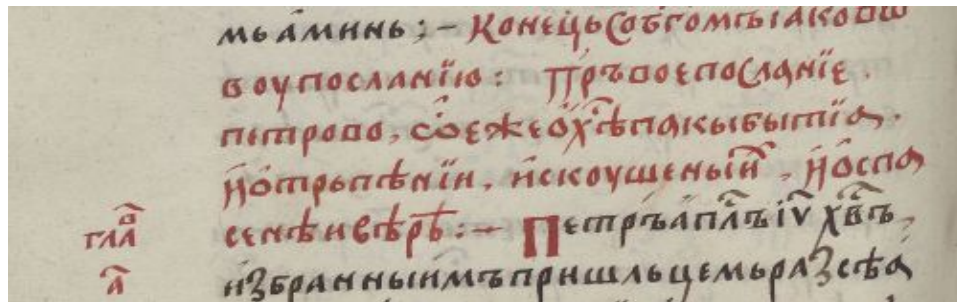 мь а҆минь ; – Конець Собо́мꙋ ꙗковѡ
воу посланїю : Пръвое посланїе .
петрово , сѡ́еже ѡ҆ х҃ѣ пакыбытїа ,
и҆ ѡ҆ трьпѣнїи , и҆скоушенїиⷯ , и҆ ѡ҆ спа
семѣи вѣрⷺ : – Петръ а҆пⷭ҇лъ іѵ҃ хв҃ъ ,
глаⷡ҇ и҆збранныи҆мъ пришльцемь разсѣа
а҃